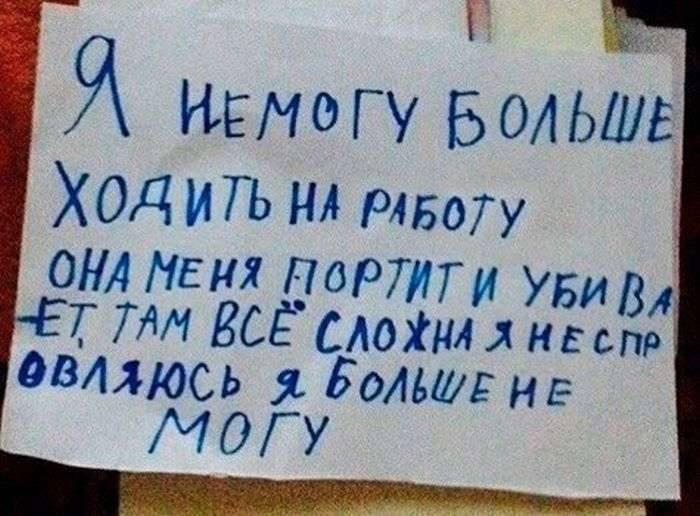 Я НЕМОГУ БОЛЬШЕ
ХОДИТЬ НА РАБОТУ
ОНА МЕНЯ ПОРТИТ И УБИВА
-ЕТ, ТАМ ВСЁ СЛОЖНА Я НЕ СПР
ОВЛЯЮСЬ Я БОЛЬШЕ НЕ
МОГУ